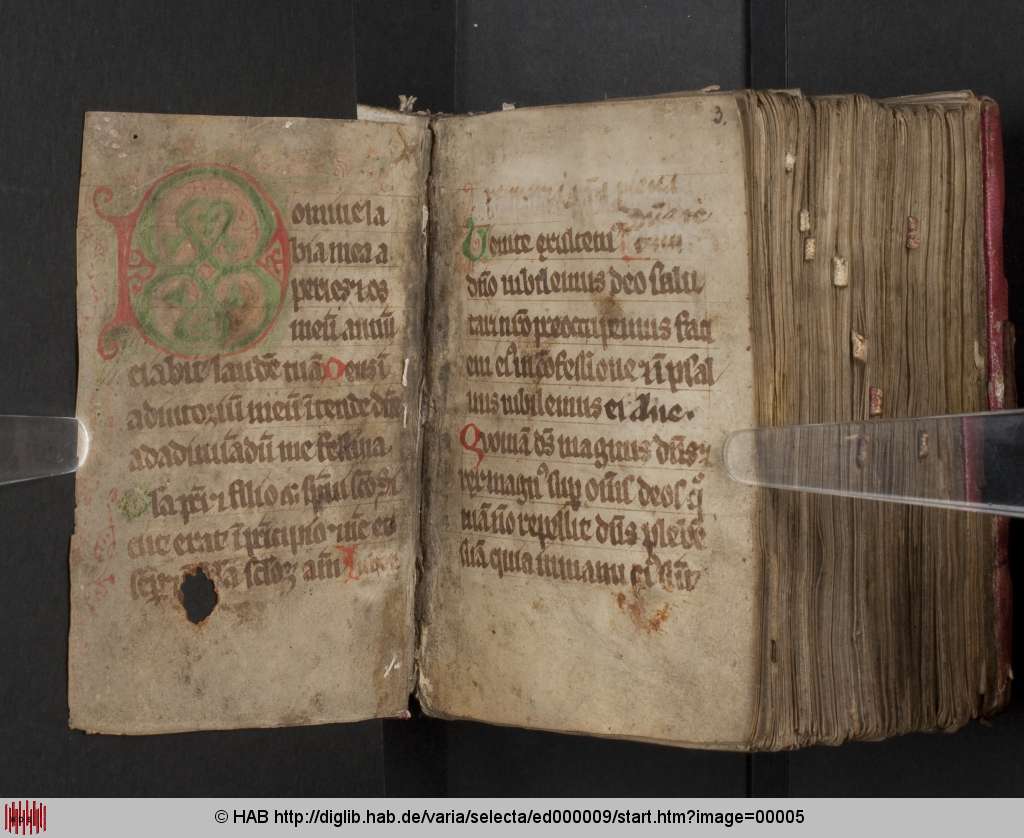 Domine la
bia mea a
peries ⁊ os
meū anūci
ciabit laudē tuā Deus ī
adiutoriū meū ītende dn̄e
ad adiuuādū me festina
Gl̓a pr̄i ⁊ filio ⁊ sp̄ui scō Si
cut erat ī prīcipio ⁊ nūc et
sēp scl̓oꝝ am̄
3.
Venite exultem
dn̄o iubilemus deo salu
tari nr̄o preoccupemus faci
em eiꝰ ī cōfessione ⁊ ī psal
mis iubilemus ei Aue.
Quoniā ds̄ magnus dn̄s ⁊
rex magnꝰ sup om̄s deos qm̄
nō repellit dn̄s plebē
suā quia in manu eiꝰ sūt
© HAB http://diglib.hab.de/varia/selecta/ed000009/start.htm?image=00005